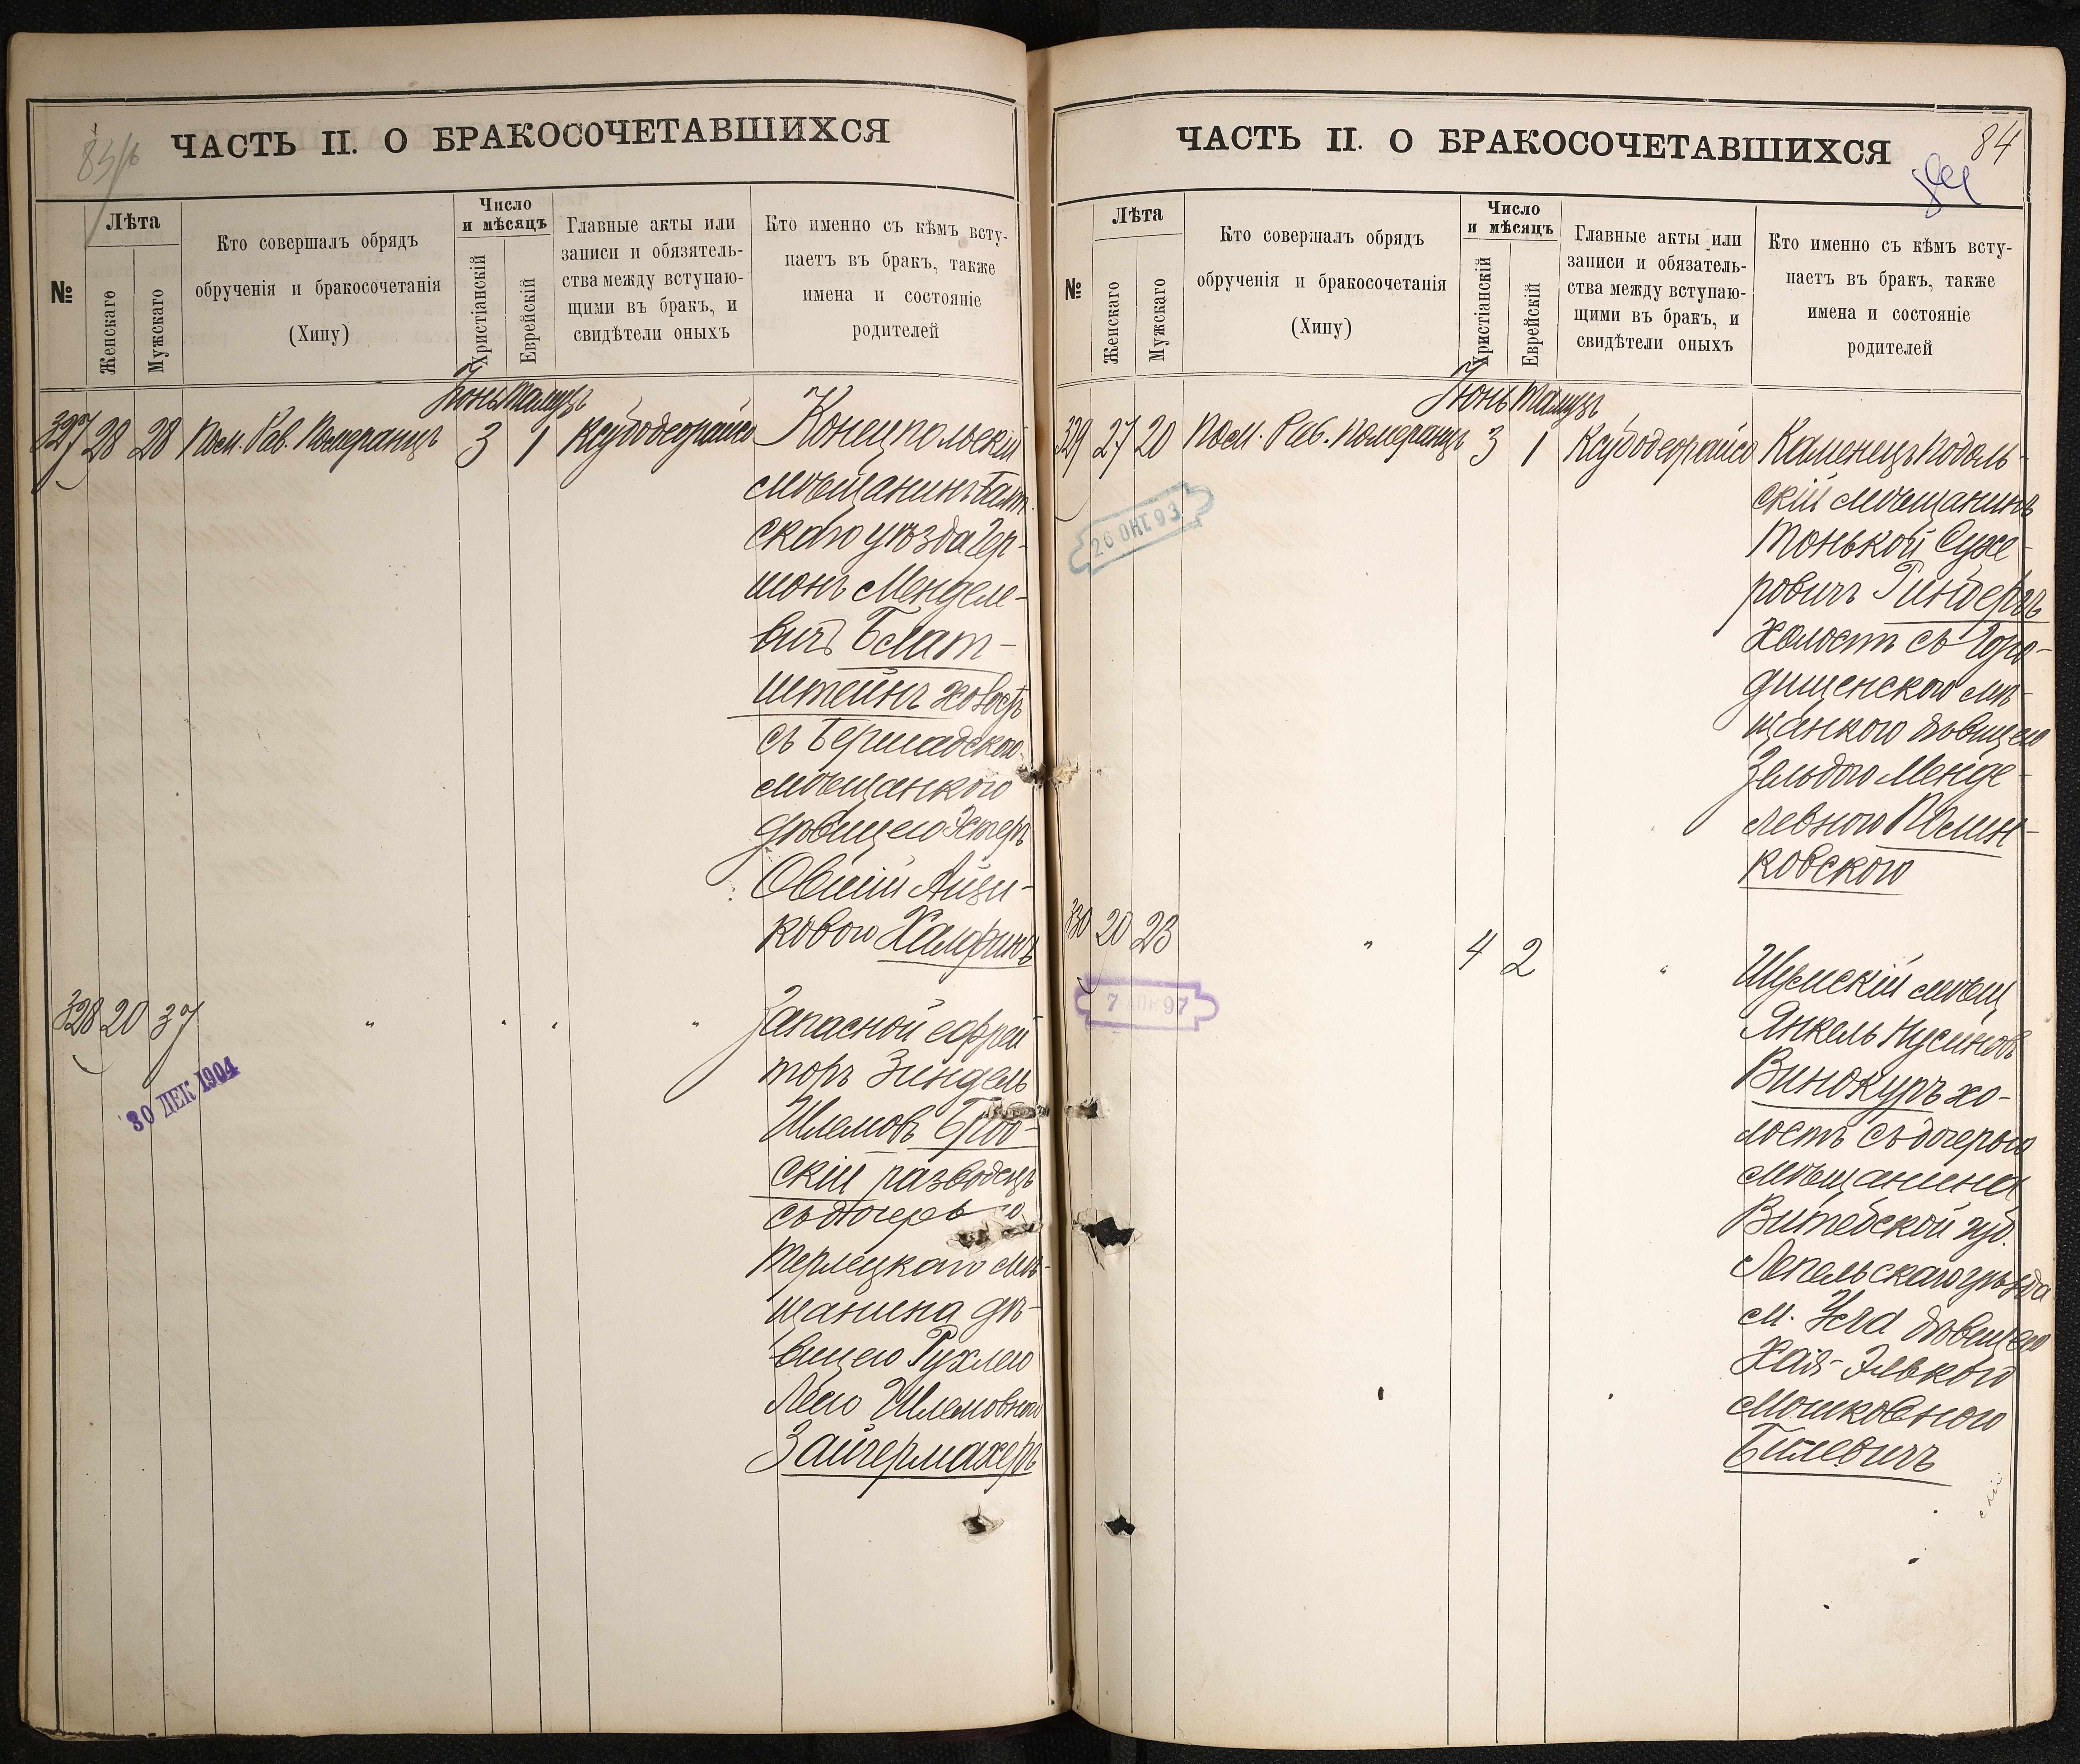 83/об
ЧАСТЬ II. О БРАКОСОЧЕТАВШИХСЯ
№
Лѣта
Женскаго
Мужскаго
Кто совершалъ обрядъ
обрученія и бракосочетанія
(Хипу)
Число
и мѣсяцъ
Христіанскій
Еврейскій
Главные акты или
записи и обязятель-
ства между вступаю-
щими въ бракъ, и
свидѣтели оныхъ
Кто именно съ кѣмъ всту-
паетъ въ бракъ, также
имена и состояніе
родителей
Іюнь Тамузъ
327 28 28 Пом. Рав. Померанцъ 3 1 Ксубодеорайсо Конецпольскій
мѣщанинъ Балт-
скаго уѣзда Гер-
шонъ Менделе-
вичъ Блат-
штейнъ холостъ
съ Бершадскою
мѣщанкою
дѣвицею Эстеръ
Овшій Айзи-
ковою Халфинъ
328 20 37 " " " " Запасной ефрей
торъ Зиндель
Шлемовъ Брод-
скій разводецъ
съ дочерью
Терлецкаго мѣ-
щанина дѣ-
вицею Рухлею
Леею Шлемовною
Зайгермахеръ
30 ДЕК 1904
84
84
ЧАСТЬ II. О БРАКОСОЧЕТАВШИХСЯ
№
Лѣта
Женскаго
Мужскаго
Кто совершалъ обрядъ
обрученія и бракосочетанія
(Хипу)
Число
и мѣсяцъ
Христіанскій
Еврейскій
Главные акты или
записи и обязатель-
ства между вступаю-
щими въ бракъ, и
свидѣтели оныхъ
Кто именно съ кѣмъ всту-
паетъ въ бракъ, также
имена и состояніе
родителей
Іюнь Тамузъ
329 27 20 Пом. Рав. Померанцъ 3 1 Ксубодеорайсо Каменецъ Подоль-
скій мѣщанинъ
Монькой Сухе-
ровичъ Гинберъ
холостъ съ Горо-
дищенскою мѣ-
щанкою дѣвицею
Зельдою Менде-
левною Полин-
ковскою
26 ОКТ 93
330 20 23 " 4 2 " Шумскій мѣщ
Янкель Нусиновъ
Винокуръ хо-
лостъ съ дочерью
мѣщанина
Витебской губ.
Лепельскаго уѣзда
м. Уста дѣвицею
Хая-Элькою
Мошковною
Билевичъ
7 АПР 97